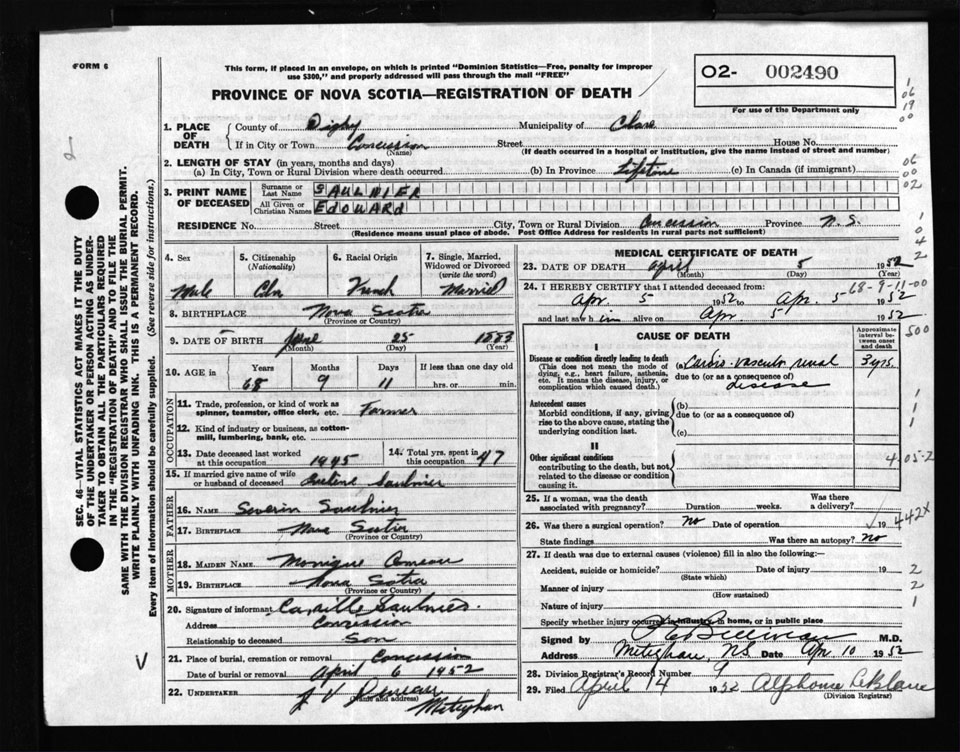 FORM 6
This form, if placed in an envelope, on which is printed "Dominion Statistics—Free, penalty for improper
use $300," and properly addressed will pass through the mail "FREE"
02- 002490
For use of the Department only
PROVINCE OF NOVA SCOTIA—REGISTRATION OF DEATH
1. PLACE OF DEATH
County of Digby Municipality of Clare
If in City or Town Concession Street House No.
(Name) (If death occurred in a hospital or institution, give the name instead of street and number)
2. LENGTH OF STAY (in years, months and days)
(a) In City, Town or Rural Division where death occurred (b) In Province Lifetime (c) In Canada (if immigrant)
3. PRINT NAME OF DECEASED
Surname or Last Name SAULNIER
All Given or Christian Names EDOUARD
RESIDENCE No. Street City, Town or Rural Division Concession Province N.S.
(Residence means usual place of abode. Post Office Address for residents in rural parts not sufficient)
4. Sex Male
5. Citizenship (Nationality) Cdn
6. Racial Origin French
7. Single, Married, Widowed or Divorced (write the word) Married
8. BIRTHPLACE Nova Scotia
(Province or Country)
9. DATE OF BIRTH June 25 1883
(Month) (Day) (Year)
10. AGE in Years Months Days If less than one day old
68 9 11 hrs. or min.
OCCUPATION
11. Trade, profession, or kind of work as spinner, teamster, office clerk, etc. Farmer
12. Kind of industry or business, as cotton-mill, lumbering, bank, etc.
13. Date deceased last worked at this occupation 1945
14. Total yrs. spent in this occupation 47
15. If married give name of wife or husband of deceased Saulnier
FATHER
16. NAME Severin Saulnier
17. BIRTHPLACE Nova Scotia
(Province or Country)
MOTHER
18. MAIDEN NAME Monique Comeau
19. BIRTHPLACE Nova Scotia
(Province or Country)
20. Signature of informant Camille Saulnier
Address Concession
Relationship to deceased Son
21. Place of burial, cremation or removal Concession
Date of burial or removal April 6 1952
22. UNDERTAKER
(Name and address) Meteghan
MEDICAL CERTIFICATE OF DEATH
23. DATE OF DEATH April 5 1952
(Month) (Day) (Year)
24. I HEREBY CERTIFY that I attended deceased from: 68-9-11-00
Apr 5 1952 to Apr 5 1952
and last saw him alive on Apr 5 1952
CAUSE OF DEATH
Approximate interval between onset and death
I
Disease or condition directly leading to death
(This does not mean the mode of dying, e.g., heart failure, asthenia, etc. It means the disease, injury, or complication which caused death.)
(a) Cardio-vasculo renal 3 yrs.
due to (or as a consequence of) disease
Antecedent causes
Morbid conditions, if any, giving rise to the above cause, stating the underlying condition last.
(b)
due to (or as a consequence of)
(c)
II
Other significant conditions
contributing to the death, but not related to the disease or condition causing it.
25. If a woman, was the death associated with pregnancy? Duration weeks. Was there a delivery?
26. Was there a surgical operation? No Date of operation 19
State findings Was there an autopsy? No
27. If death was due to external causes (violence) fill in also the following:—
Accident, suicide or homicide? Date of injury 19
(State which)
Manner of injury
(How sustained)
Nature of injury
Specify whether injury occurred in industry, in home, or in public place
Signed by M.D.
Address Meteghan, N.S. Date Apr 10 1952
28. Division Registrar's Record Number 9
29. Filed April 14 1952 Alphonse LeBlanc
(Division Registrar)
SEC. 46—VITAL STATISTICS ACT MAKES IT THE DUTY
OF THE UNDERTAKER OR PERSON ACTING AS UNDER-
TAKER TO OBTAIN ALL THE PARTICULARS REQUIRED
IN THE "REGISTRATION OF DEATH" AND TO FILE THE
SAME WITH THE DIVISION REGISTRAR WHO SHALL ISSUE THE BURIAL PERMIT.
WRITE PLAINLY WITH UNFADING INK. THIS IS A PERMANENT RECORD.
Every item of information should be carefully supplied. (See reverse side for instructions.)
06
19
00
06
00
02
500
4.05-2
442X
2
2
1